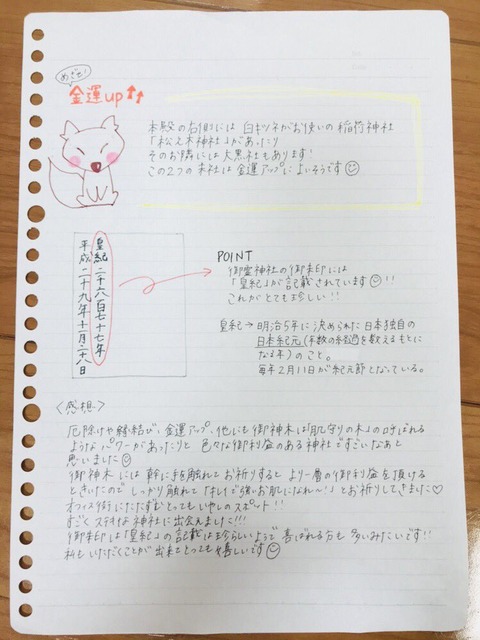 めざせ!
金運up↑↑
本殿の右側には白キツネがお使いの稲荷神社
「松之木神社」があったり
そのお隣には大黒社もあります!
この2つの末社は金運アップによいそうです
皇紀二千六百七十七年
平成二十九年十一月二十八日
POINT
御霊神社の御朱印には
「皇紀」が記載されています!!
これがとても珍しい!!
皇紀→明治5年に決められた日本独自の
日本紀元(年数の経過を数えるもとに
なる年)のこと。
毎年2月11日が紀元節となっている。
〈感想〉
厄除けや縁結び、金運アップ、他にも御神木は「肌守りの木」の呼ばれる
ようなパワーがあったりと色々な御利益のある神社ですごいなぁと
思いました
御神木には幹に手を触れてお祈りするとより一層の御利益を頂ける
ときいたのでしっかり触れて「キレイで強いお肌になれ〜!」とお祈りしてきました♡
オフィス街にたたずむとってもいやしのスポット!!
すごくステキな神社に出会えました!!!
御朱印は「皇紀」の記載は珍らしいようで喜ばれる方も多いみたいです!!
私もいただくことが出来てとっても嬉しいです